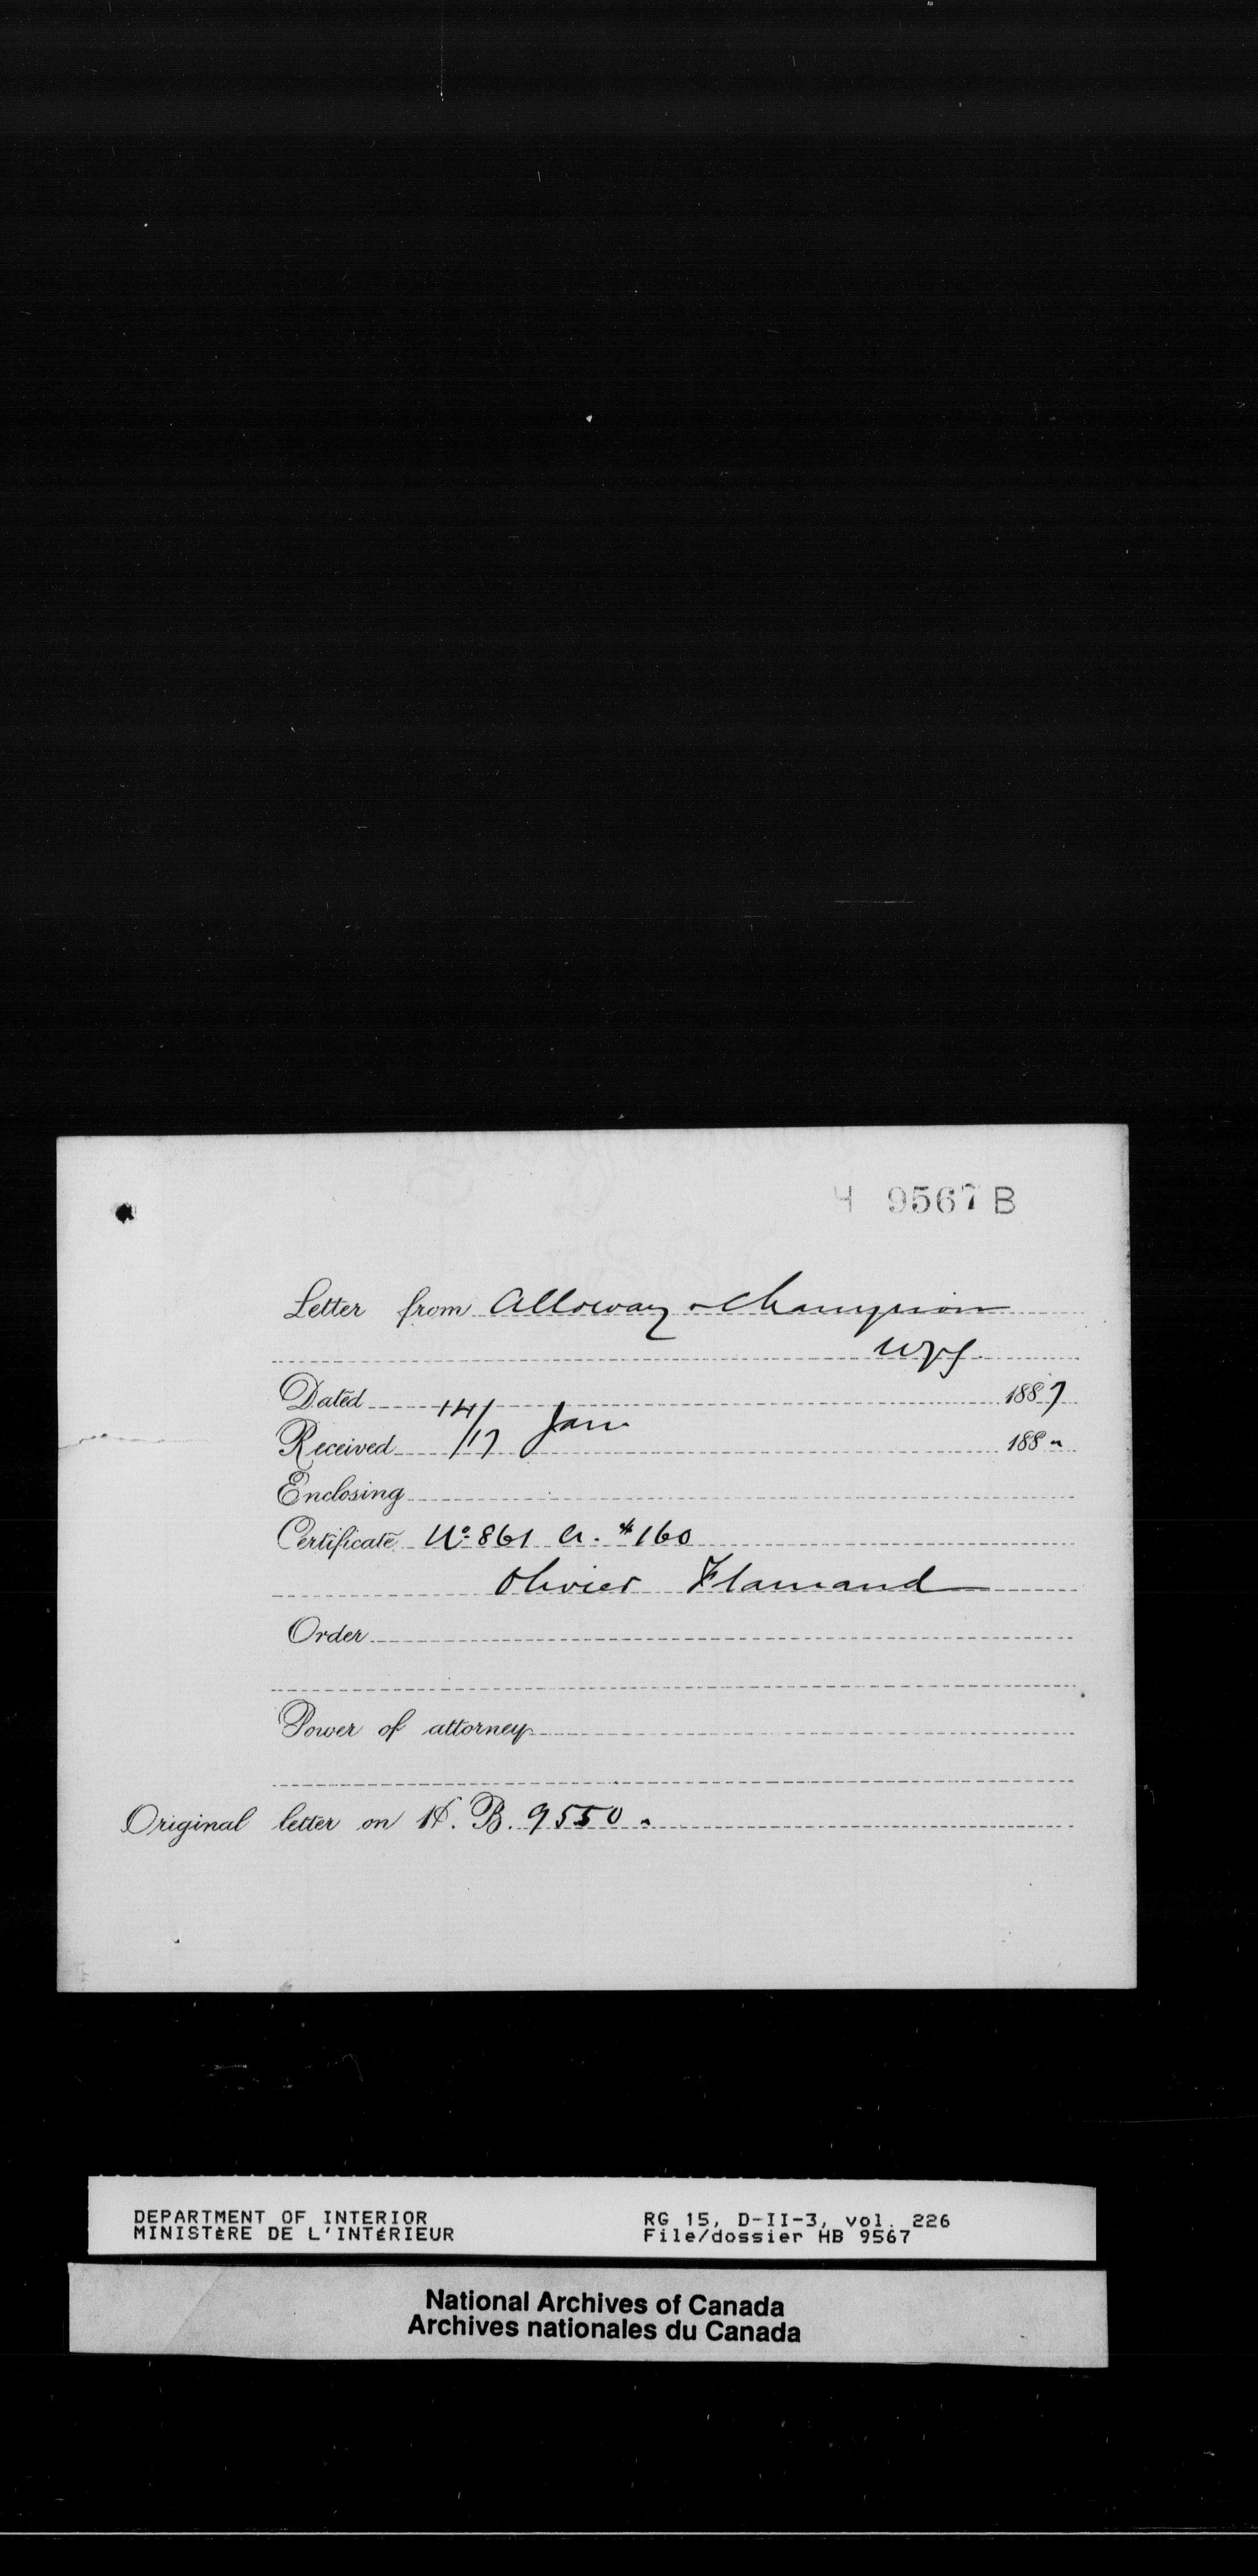 H 9567 B
Letter from Alloway & Champion
Wpg.
Dated 14/ Jan 1887
Received /17 188 "
Enclosing
Certificate No. 861 A. $160
Olivier Flamand
Order
Power of attorney
Original letter on H. B. 9550.
DEPARTMENT OF INTERIOR RG 15, D-II-3, vol. 226
MINISTÈRE DE L'INTÉRIEUR File/dossier HB 9567
National Archives of Canada
Archives nationales du Canada